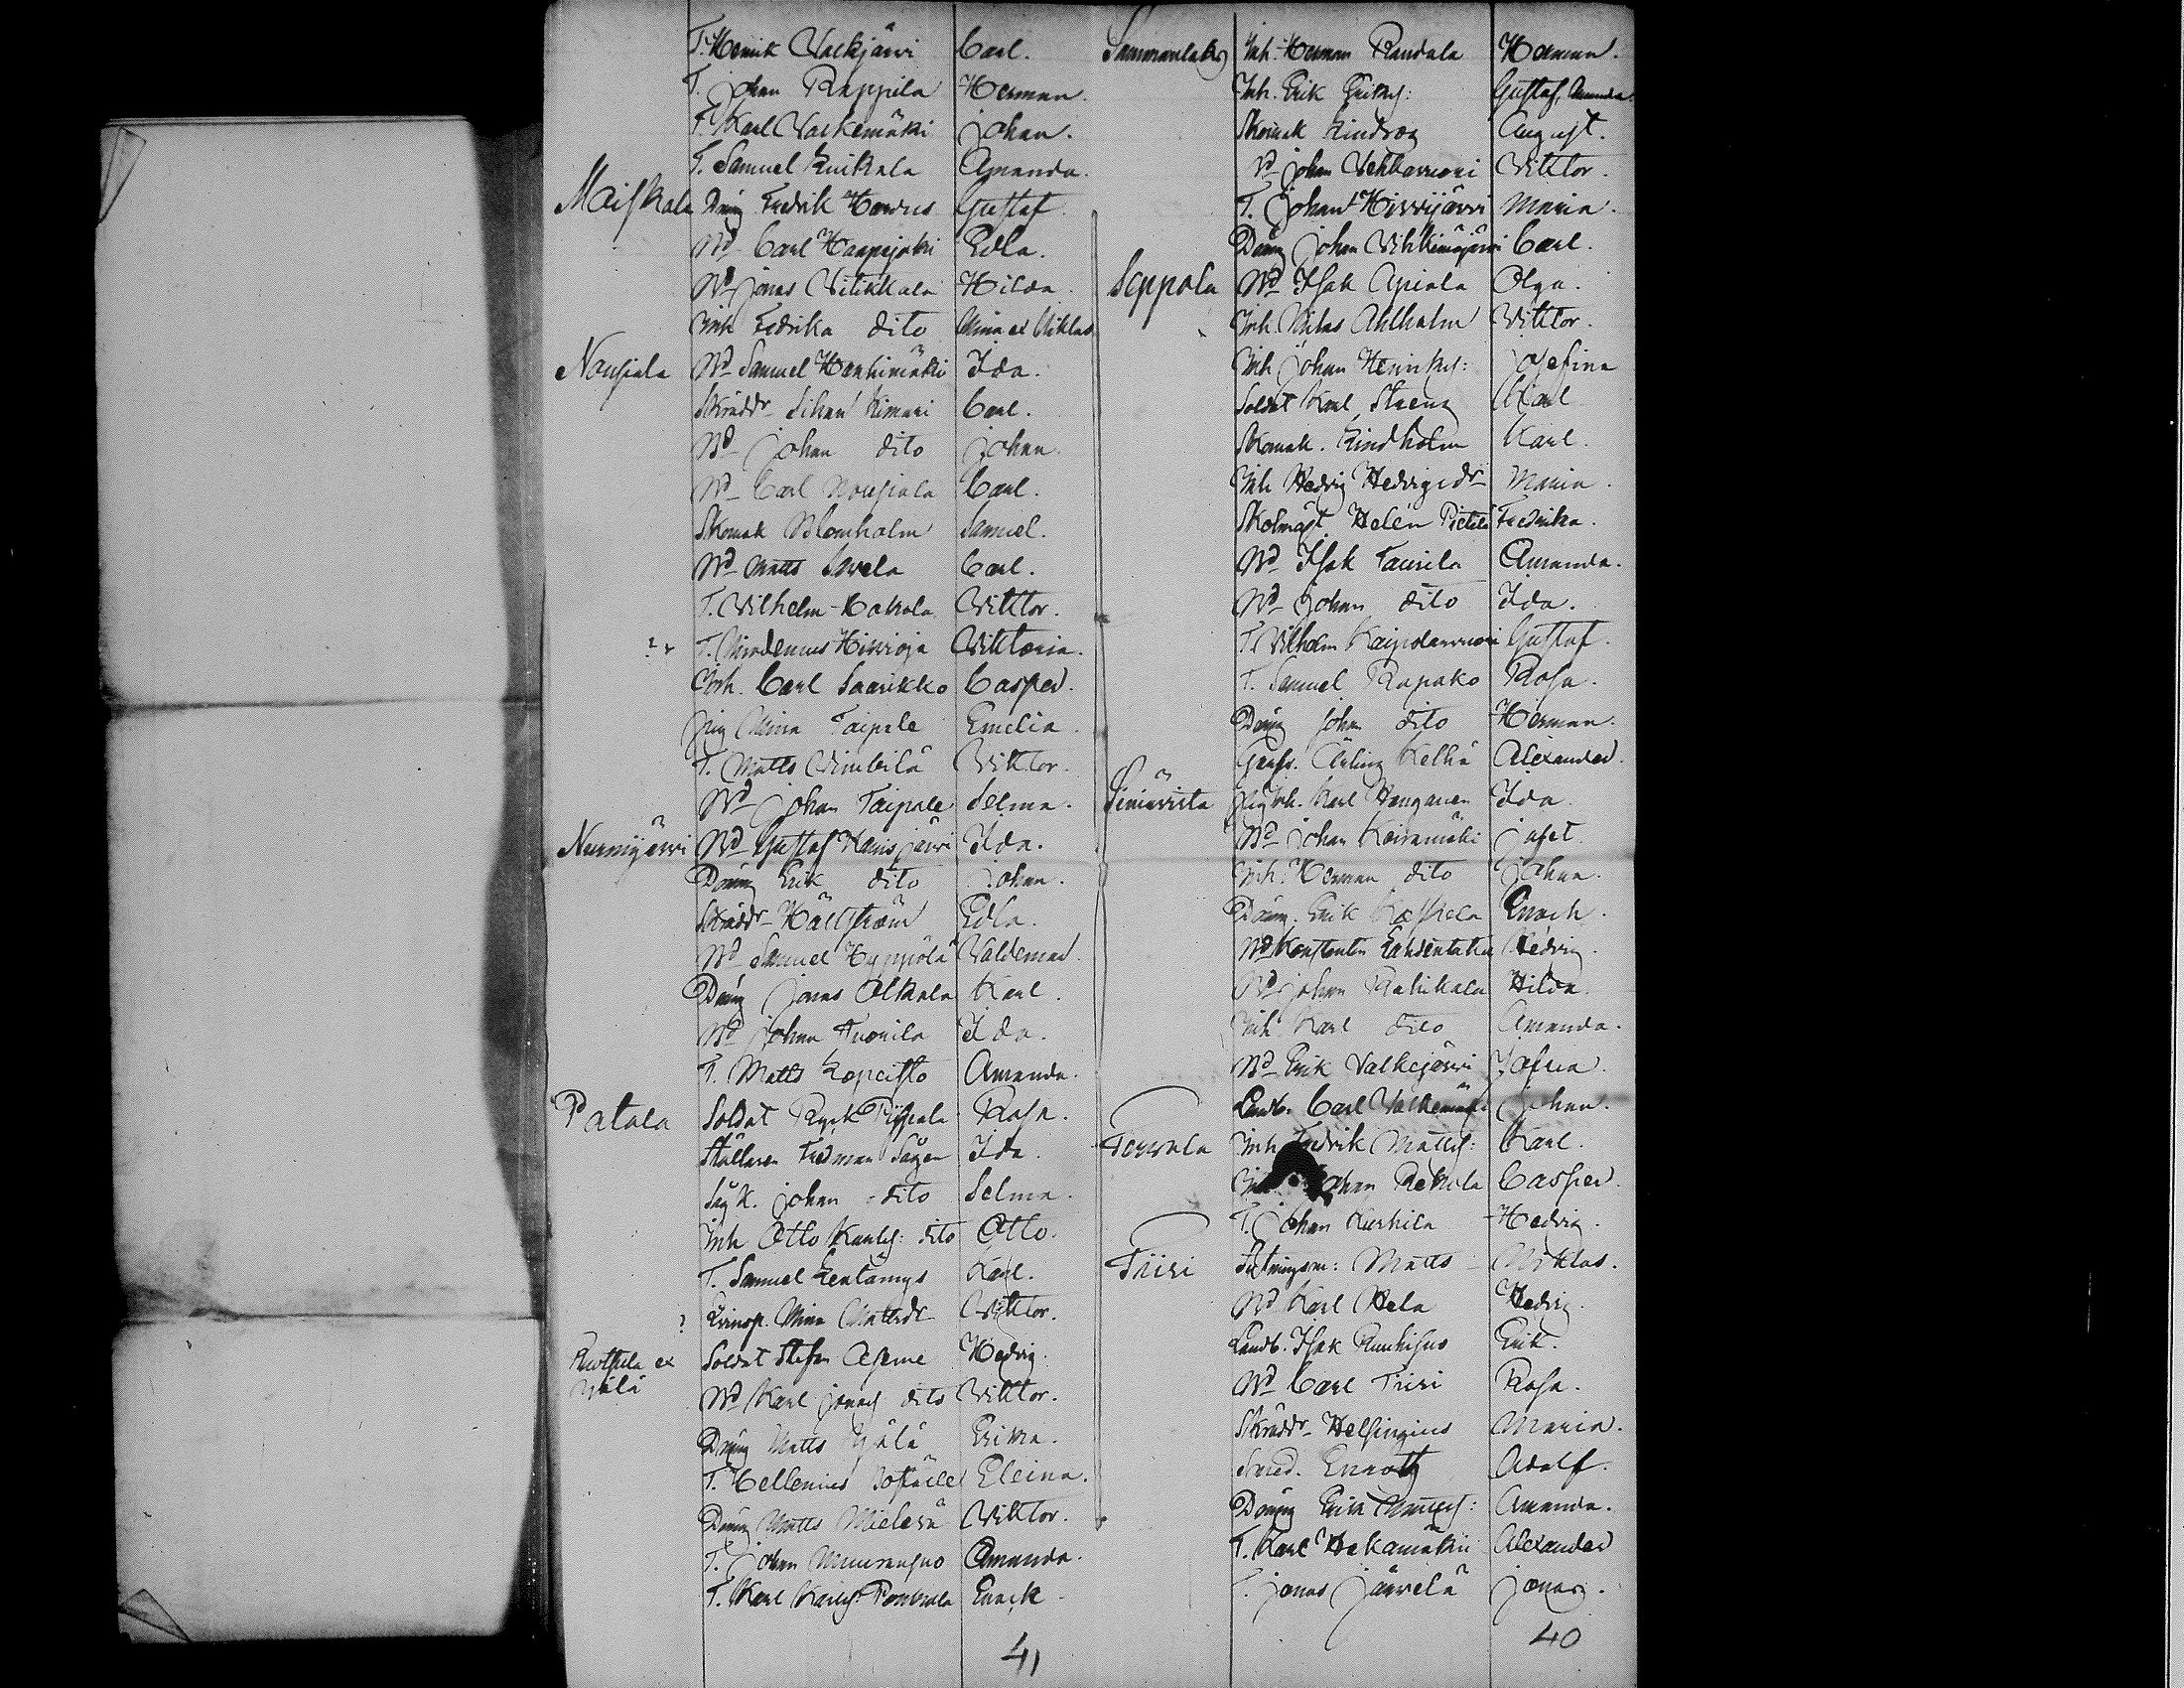 T. Henrik Valkjärvi Carl.
T. Johan Rappila Herman.
T. Karl Valkemäki Johan.
T. Samuel Kuikala Amanda.
Maiskala Dräng Fredrik Gustaf.
Nd Carl Haapajoki Edla.
Nd Jonas Vitikkala Hilda.
Inh Fredrika dito Mina et Niklas
Nousiala Nd Samuel Hanhimäki Ida.
Skräddr Johan Kimari Carl.
Nd Johan dito Johan.
Nd Carl Nousiala Carl.
Skomak Blomholm Samuel.
Nd Matts Savela Carl.
T. Vilhelm Kokala Vikttor.
T. Hirvioja Vikttoria.
Inh. Carl Saarikko Casper.
Pig Mina Taipale Emelia.
T. Matts Vimbilä Vikttor.
Nd Johan Taipale Selma.
Nurmijärvi Nd Gustaf Ida.
Dräng Erik dito Johan.
Skräddr Hällström Edla.
Nd Samuel Hyppölä Valdemar.
Dräng Jonas Alkala Karl.
Nd Johan Tuorila Ida.
T. Matts Lopeisto Amanda.
Patala Soldat Rosa.
Ställaren Fredman Sågen Ida.
Såg K. Johan dito Selma.
Inh Otto Karls: dito Otto.
T. Samuel Lentamys Karl.
? Qvinsp. Mina Mattsdr Vikttor.
et Yälä Soldat Stefan Hedvig.
Nd Karl Jonas dito Vikttor.
Dräng Matts Yälä Erika.
T. Cellenius Eleina.
Dräng Matts Mielesä Vikttor.
T. Johan Amanda.
T. Karl Karls: Enock
41
Sammanlaks Inh. Herman Randala Herman.
Inh. Erik Eriks: Gustaf, Amanda.
Skomak Lindroos August.
Nd Johan Vehkavuori Vikttor.
T. Johan Hirvijärvi Maria.
Dräng Johan Vihkimäjärvi Carl.
Seppola Nd Isak Apiala Olga.
Inh. Niklas Ahlholm Vikttor.
Inh Johan Henriks: Josefina
Soldat Karl Streng Karl
Skomak. Lindholm Karl.
Inh Hedvig Hedvigsdr Maria.
Helén Pietilä Fredrika.
Nd Isak Taurila Amanda.
Nd Johan dito Ida.
T. Vilhelm Kaipolanvuori Gustaf.
T. Samuel Rapako Rosa.
Dräng Johan dito Herman.
Kelhä Alexander.
Sinivirta Inh. Karl Hanganen Ida.
Nd Johan Koivumäki Jafet.
Inh. Herman dito Johan.
Dräng. Erik Enoch.
Nd Konstantin Hedvig.
Nd Johan Rahikala Hilda.
Inh Karl dito Amanda.
Nd Erik Valkejärvi Josefina.
Landb. Carl Valkemäki Johan.
Torvala Inh Fredrik Matts: Karl.
Johan Rekola Casper.
T. Johan Kurkila Hedvig.
Triri Matts Nicklas.
Nd Karl Hela Hedvig.
Landb. Isak Ruuhisuo Erik.
Nd Carl Triri Rosa.
Skräddr Helsingius Maria.
Smed. Enroth Adolf.
Dräng Erik Matts: Amanda.
T. Karl Hakamäki Alexander
T. Jonas Järvelä Jonas.
40